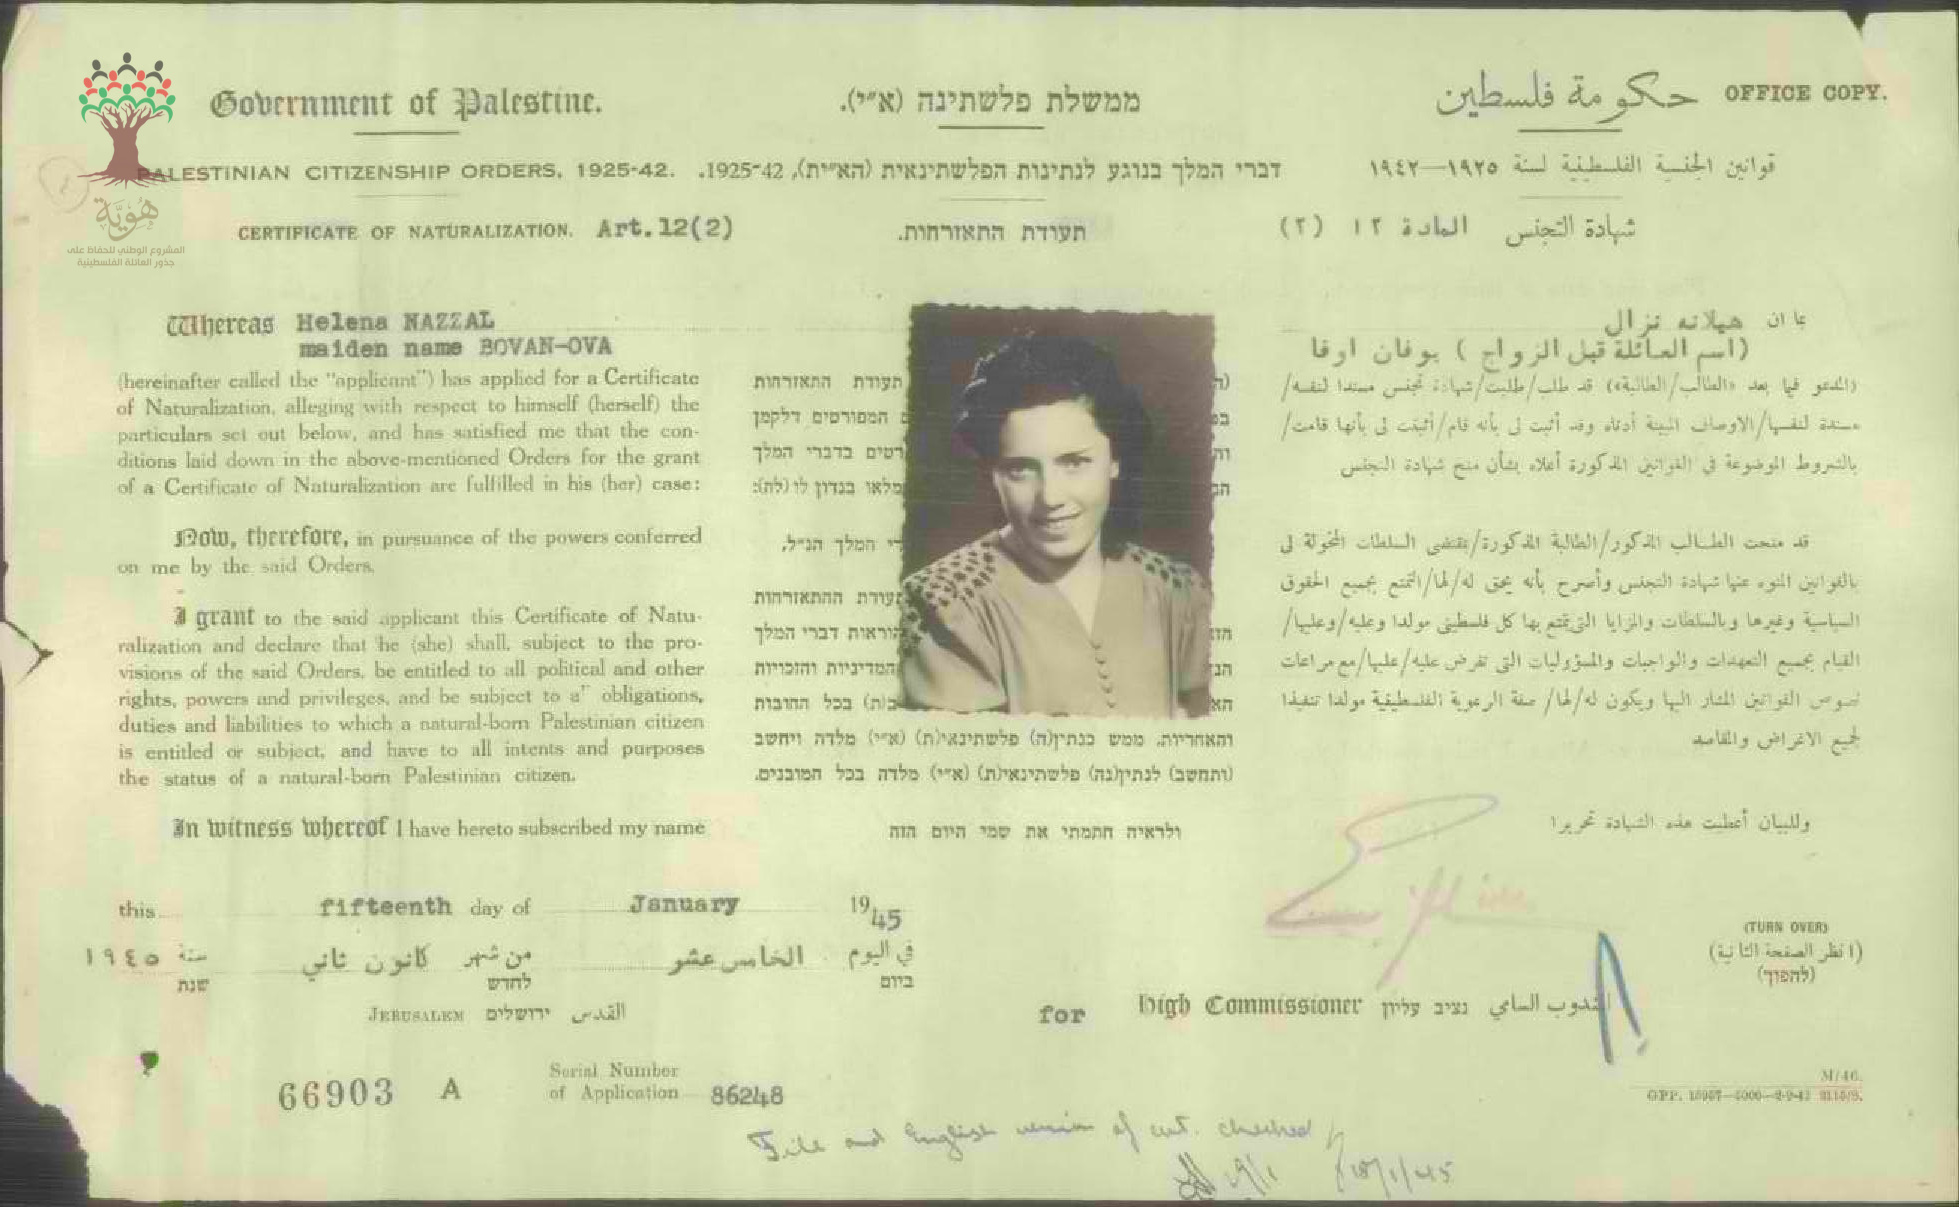 Government of Palestine.
ממשלת פלשתינה (א״י).
حكومة فلسطين
OFFICE COPY.
PALESTINIAN CITIZENSHIP ORDERS, 1925-42.
דברי המלך בנוגע לנתינות הפלשתינאית (הא״ית), 1925-42.
قوانين الجنسية الفلسطينية لسنة ١٩٢٥—١٩٤٢
هُوِيَّة
المشروع الوطني للحفاظ على
جذور العائلة الفلسطينية
CERTIFICATE OF NATURALIZATION. Art.12(2)
תעודת התאזרחות.
شهادة التجنس المادة ١٢ (٢)
Whereas Helena NAZZAL
maiden name BOVAN-OVA
(hereinafter called the "applicant") has applied for a Certificate
of Naturalization, alleging with respect to himself (herself) the
particulars set out below, and has satisfied me that the con-
ditions laid down in the above-mentioned Orders for the grant
of a Certificate of Naturalization are fulfilled in his (her) case:
Now, therefore, in pursuance of the powers conferred
on me by the said Orders.
I grant to the said applicant this Certificate of Natu-
ralization and declare that he (she) shall, subject to the pro-
visions of the said Orders, be entitled to all political and other
rights, powers and privileges, and be subject to a'' obligations,
duties and liabilities to which a natural-born Palestinian citizen
is entitled or subject, and have to all intents and purposes
the status of a natural-born Palestinian citizen.
In witness whereof I have hereto subscribed my name
תעודת התאזרחות
המפורטים דלקמן
בדברי המלך
מלאו בנדון לו (לה):
המלך הנ״ל,
הוראות דברי המלך
המדיניות והזכויות
בכל החובות
והאחריות, ממש כנתין(ה) פלשתינאי(ת) (א״י) מלדה ויחשב
(ותחשב) לנתין(נה) פלשתינאי(ת) (א״י) מלדה בכל המובנים.
ולראיה חתמתי את שמי היום הזה
بما ان هيلانه نزال
(اسم العائلة قبل الزواج) بوفان اوفا
(المدعو فيما بعد «الطالب/الطالبة») قد طلب/طلبت/شهادة تجنس مسندا لنفسه/
مسندة لنفسها/الاوصاف المبينة أدناه وقد أثبت لى بأنه قام/أثبتت لى بأنها قامت/
بالشروط الموضوعة في القوانين المذكورة أعلاه بشأن منح شهادة التجنس
قد منحت الطالب المذكور/الطالبة المذكورة/بمقتضى السلطات المخولة لى
بالقوانين المنوه عنها شهادة التجنس وأصرح بأنه يحق له/لها/التمتع بجميع الحقوق
السياسية وغيرها وبالسلطات والمزايا التى يتمتع بها كل فلسطينى مولدا وعليه/وعليها/
القيام بجميع التعهدات والواجبات والمسؤوليات التى تفرض عليه/عليها/مع مراعات
نصوص القوانين المشار اليها ويكون له/لها/ صفة الرعوية الفلسطينية مولدا تنفيذا
لجميع الاغراض والمقاصد
وللبيان أعطيت هذه الشهادة تحريرا
this fifteenth day of January 1945
في اليوم الخامس عشر من شهر كانون ثاني سنة ١٩٤٥
ביום לחדש שנת
JERUSALEM ירושלים القدس
(TURN OVER)
(انظر الصفحة الثانية)
(להפוך)
for High Commissioner נציב עליון المندوب السامي
66903 A
Serial Number
of Application 86248
M/46.
File and English version of cert. checked
19/1 18/1/45